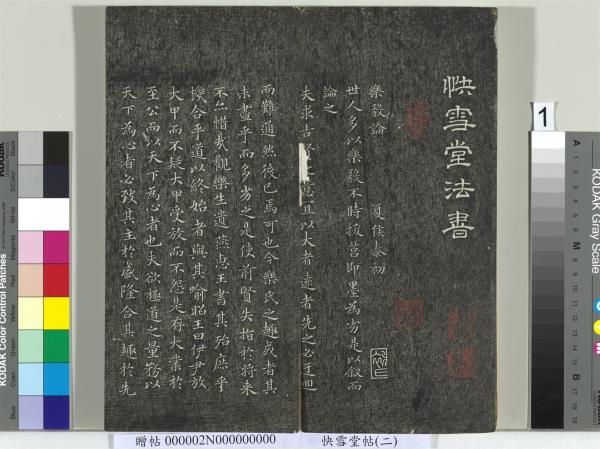 快雪堂法書
樂毅論
夏侯泰初
世人多以樂毅不時拔莒即墨為劣是以叙而
論之
夫求古賢之意宜以大者遠者先之必迂迴
而難通然後已焉可也今樂氏之趣或者其
未盡乎而多劣之是使前賢失指於將來
不亦惜哉觀樂生遺燕惠王書其殆庶乎
機合乎道以終始者與其喻昭王曰伊尹放
大甲而不疑大甲受放而不怨是存大業於
至公而以天下為心者也夫欲極道之量務以
天下為心者必致其主於盛隆合其趣於先
贈帖 000002N000000000
快雪堂帖(二)
1
KODAK Color Control Patches
Blue
Cyan
Green
Yellow
Red
Magenta
White
3/Color
Black
KODAK Gray Scale
A 1 2 3 4 5 6 M 8 9 10 11 12 13 14 15 B 17 18 19